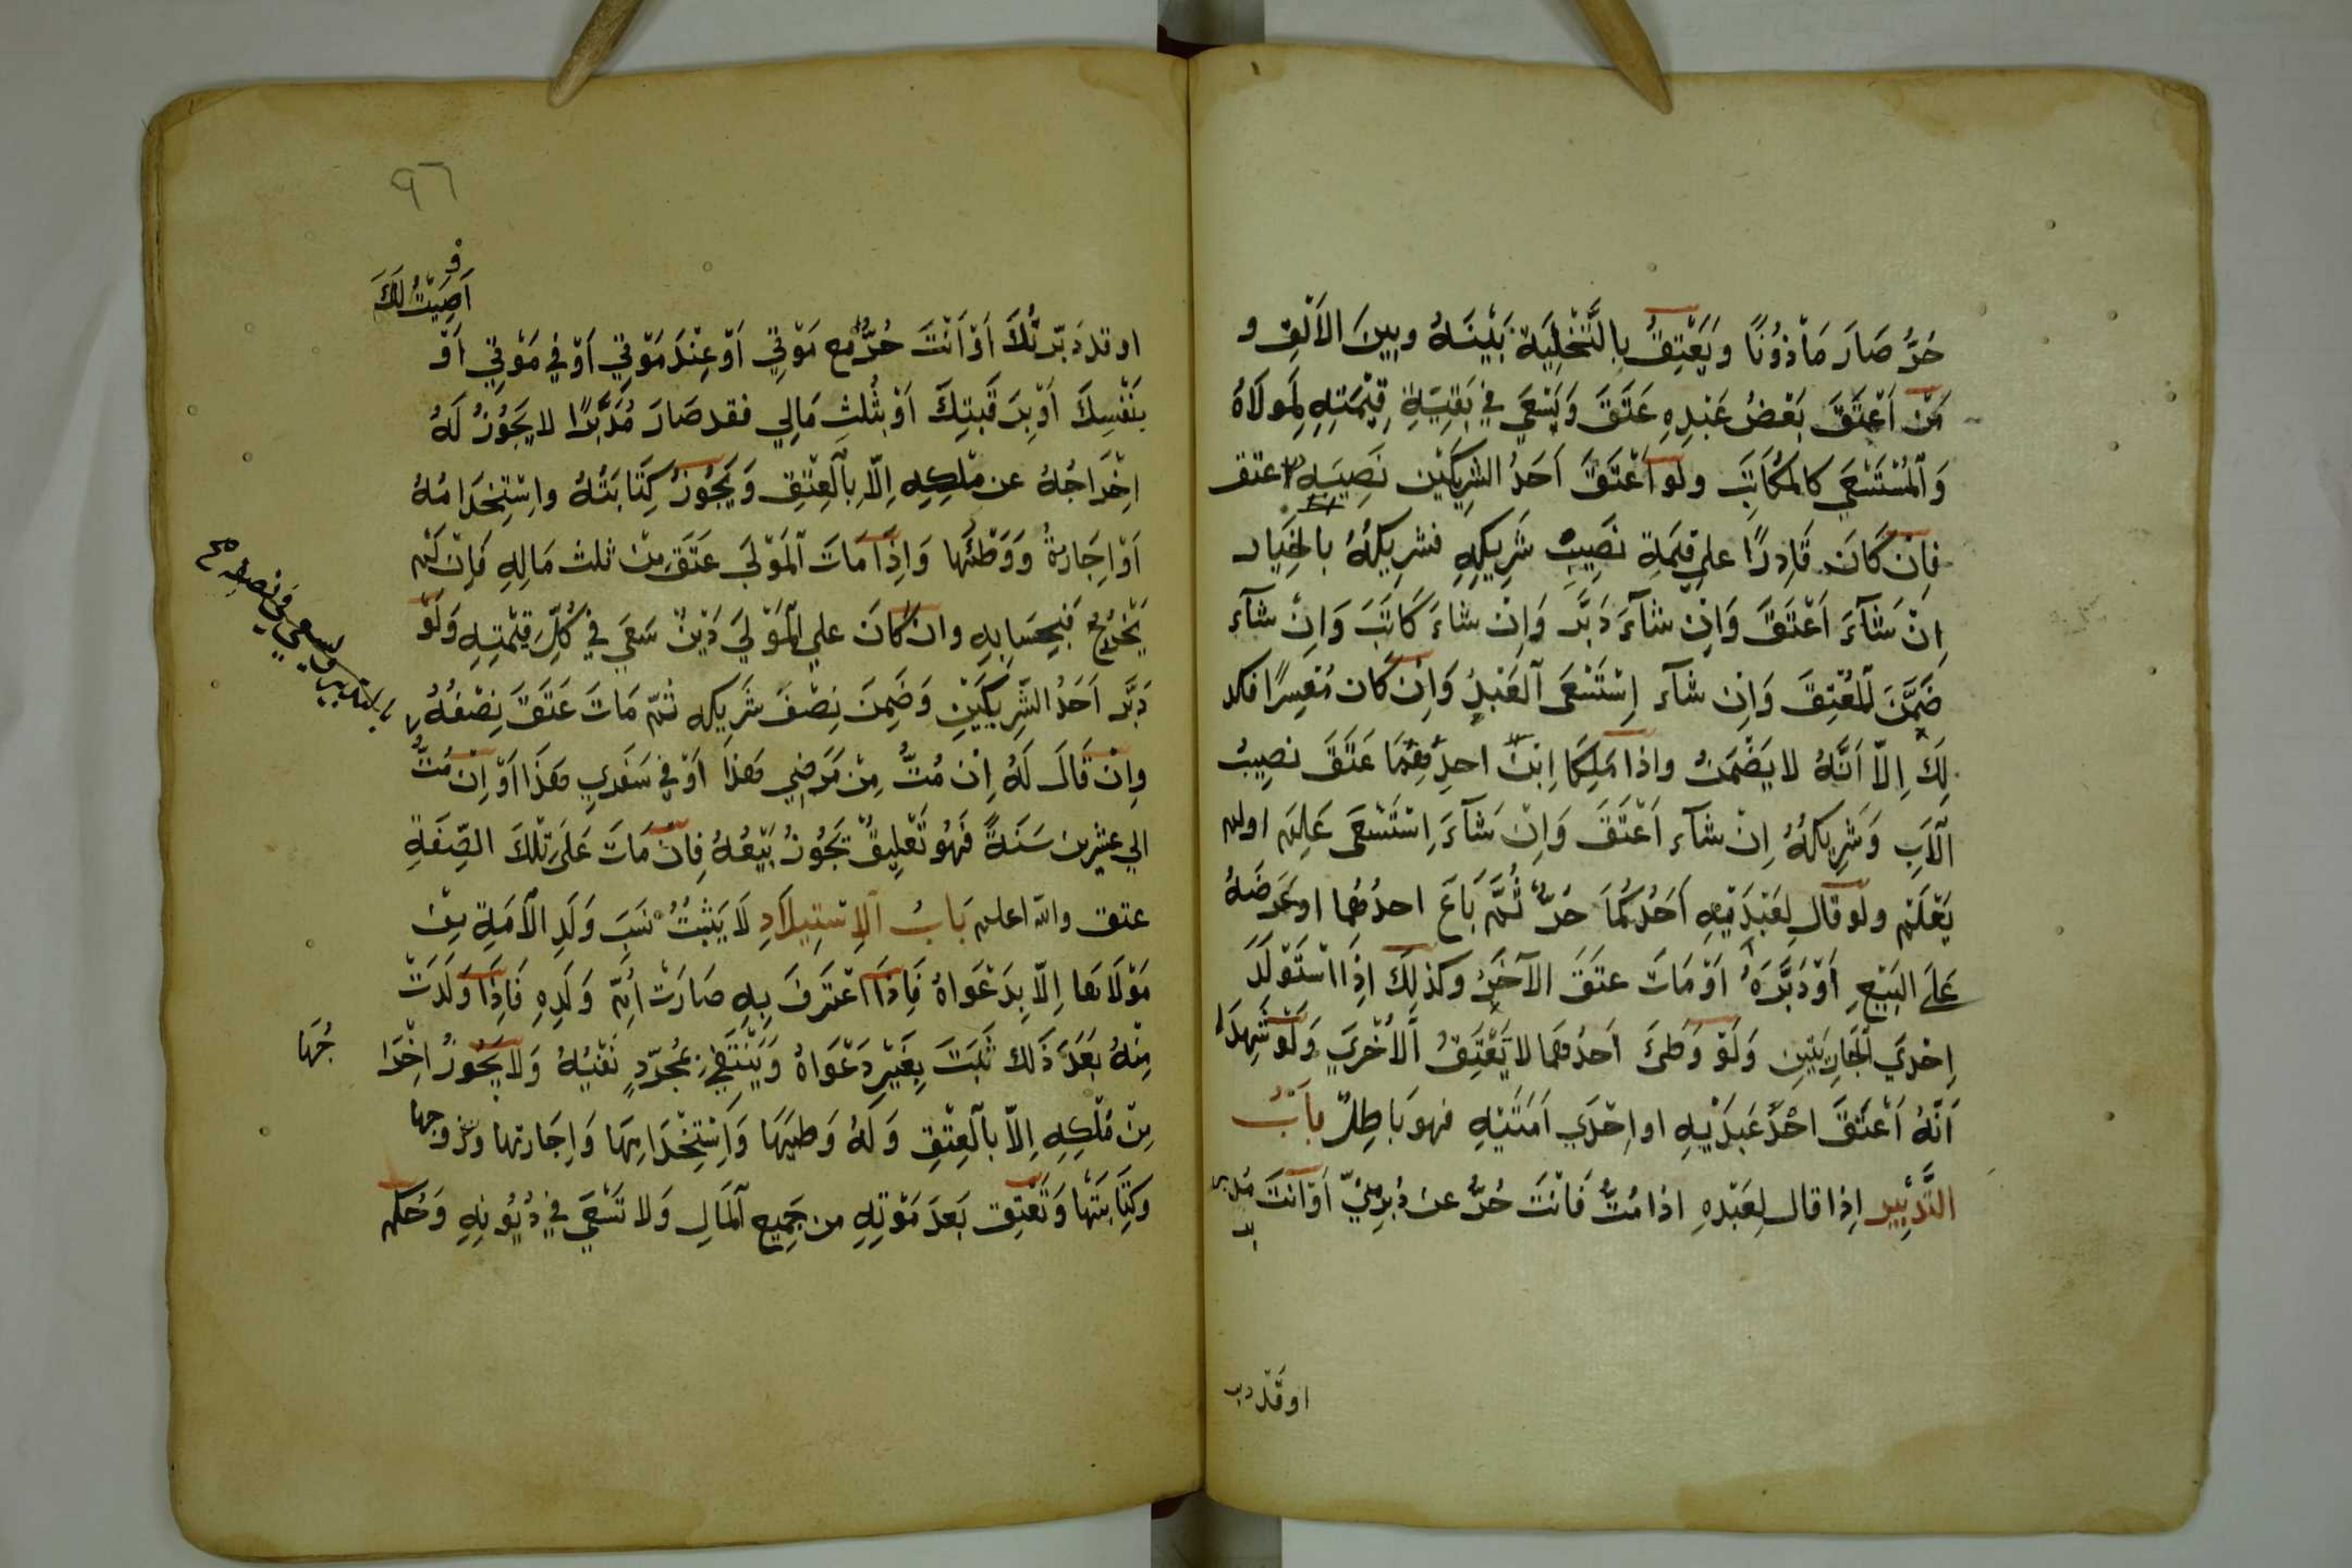 حُرٌّ صَارَ مَأْذُونًا وَيَعْتِقُ بِالتَّخْلِيَةِ بَيْنَهُ وبينَ الاَلْفِ و
مَنْ اَعْتَقَ بَعْضَ عَبْدِهِ عَتَقَ وَيَسْعَي فِي بَقِيَّةِ قِيْمَتِهِ لِمَولَاهُ
وَالْمُسْتَسْعَي كالمكَاتَبِ ولو اَعْتَقَ اَحَدُ الشريكَيْن نَصِيبَهِ عتق
فاِنْ كَانَ قَادِرًا علي قِيمَةِ نَصِيبِ شَرِيكِهِ فشريكُهُ بالخِيَار
اِنْ شَآءَ اَعْتَقَ وَاِنْ شآءَ دَبَّرَ وَاِنْ شاءَ كَاتَبَ وَاِنْ شآء
ضَمَّنَ المُعْتِقَ وَاِنْ شآء اِسْتَسْعَى العَبْدَ وَاِنْ كَان مُعْسِرًا فكذ
لِكَ اِلاّ اَنَّهُ لا يَضْمَنُ واذا مَلِكَا اِبْنَ احدِهِمَا عَتَقَ نصِيبُ
الْاَبِ وَشَرِيكُهُ اِنْ شآء اَعْتَقَ وَاِنْ شَآءَ اِسْتَسْعَى عَلِمَ اولم
يَعْلَمْ ولو قال لِعَبْدَيْهِ اَحَدُكُمَا حُرٌّ ثُمَّ بَاعَ احدَهُما اوعَرَضَهُ
عَلَى البَيْعِ اَوْ دَبَّرَهُ اَوْ مَاتَ عتَقَ الآخَرُ وكذلِكَ اِذَا اسْتَوْلَدَ
اِحْدَي الجَارِيَتَيْنِ وَلَوْ وَطِئَ اَحَدَهما لا يَعْتِقُ الْاُخْرَي وَلَوْ شَهِدَا
اَنَّهُ اَعْتَقَ احَدَ عَبدَيْهِ او اِحْدَي اَمَتَيْهِ فهو بَاطِلٌ بَابُ
التَّدْبِير اِذا قال لِعَبْدِهِ اذا مُتُّ فَانْتَ حُرٌّ عن دُبُرٍ مِنّي اَوْ انْتَ مُدبر
اوقد دب
٩٦
اَوصَيْتُ لَكَ
او قد دَبّرتُكَ اَوْ اَنْتَ حُرٌّ مع مَوْتِي اَوْ عِنْدَ مَوْتِي اَوْ في مَوْتِي اَوْ
بنَفْسِكَ اَوْ بِرَقَبَتِكَ اَوْ بثُلثِ مَالِي فقد صَارَ مُدَبَّرًا لا يَجُوزُ لَهُ
اِخْرَاجُهُ عن مِلْكِهِ اِلاّ بِالْعِتْقِ وَيَجُوزُ كِتَابَتُهُ واسْتِخدَامُهُ
اَوْ اِجَارةُ وَوَطْئُهَا وَاِذَا مَاتَ الْمَوْلَي عَتَقَ مِنْ ثلث مَالِهِ فَاِنْ لَمْ
يَخْرُجْ فَبِحِسَابِهِ وان كَانَ علي الْمَوْلَي دَيْنٌ سَعَي فِي كُلِّ قِيْمَتِهِ وَلَوْ
دَبَّرَ اَحَدُ الشَّرِيكَيْنِ وَضَمِنَ نِصْفَ شَرِيكِه ثُمّ مَاتَ عَتَقَ نِصْفُهُ
بالتدبير ويسعي في نصفه صح
وانْ قَالَ لَهُ اِنْ مُتُّ مِنْ مَرَضِي هٰذَا اَوْ فِي سَفَرِي هٰذَا اَوْ اِنْ مُتُّ
الي عشْرين سَنَةً فَهُو تَعْلِيقٌ يَجُوزُ بَيْعُهُ فاِنْ مَاتَ عَلَي تِلْكَ الصِّفَةِ
عتق والله اعلم بَابُ الاِسْتِيلاَدِ لَا يَثْبُتُ نَسَبُ وَلَدِ الْاَمَةِ مِنْ
مَوْلَاهَا اِلاّ بِدَعْوَاهُ فَاِذَا اعْتَرَفَ بِهِ صَارَتْ اُمّ وَلَدِهِ فَاِذَا وَلَدَتْ
مِنْهُ بَعْدَ ذَلك ثَبَتَ بِغَيْرِ دَعْوَاهُ وَيَنْتَفِي بمُجَرّدِ نَفْيِهُ وَلا يَجُوزُ اِخْرَا
جُهَا
مِنْ مُلْكِهِ اِلاّ بالْعِتْقِ وَلَهُ وَطيُهَا وَاسْتِخْدَامِهَا وَاِجَارتها وتزوجها
وكِتَابَتِهَا وَتَعْتِق بَعدَ مَوْتِهِ من جَمِيعِ الْمَالِ وَلا تَسْعَي فِي دُيُونِهِ وَحُكم